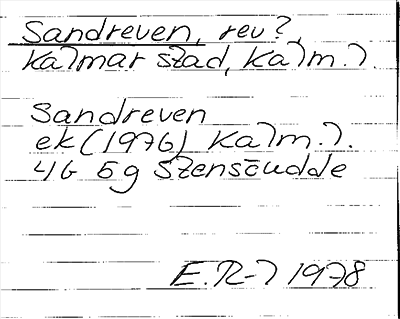 Sandreven, rev?,
Kalmar stad, Kalm. l.
Sandreven
ek (1976) Kalm. l.
4G 5g Stensöudde
E.R-l 1978